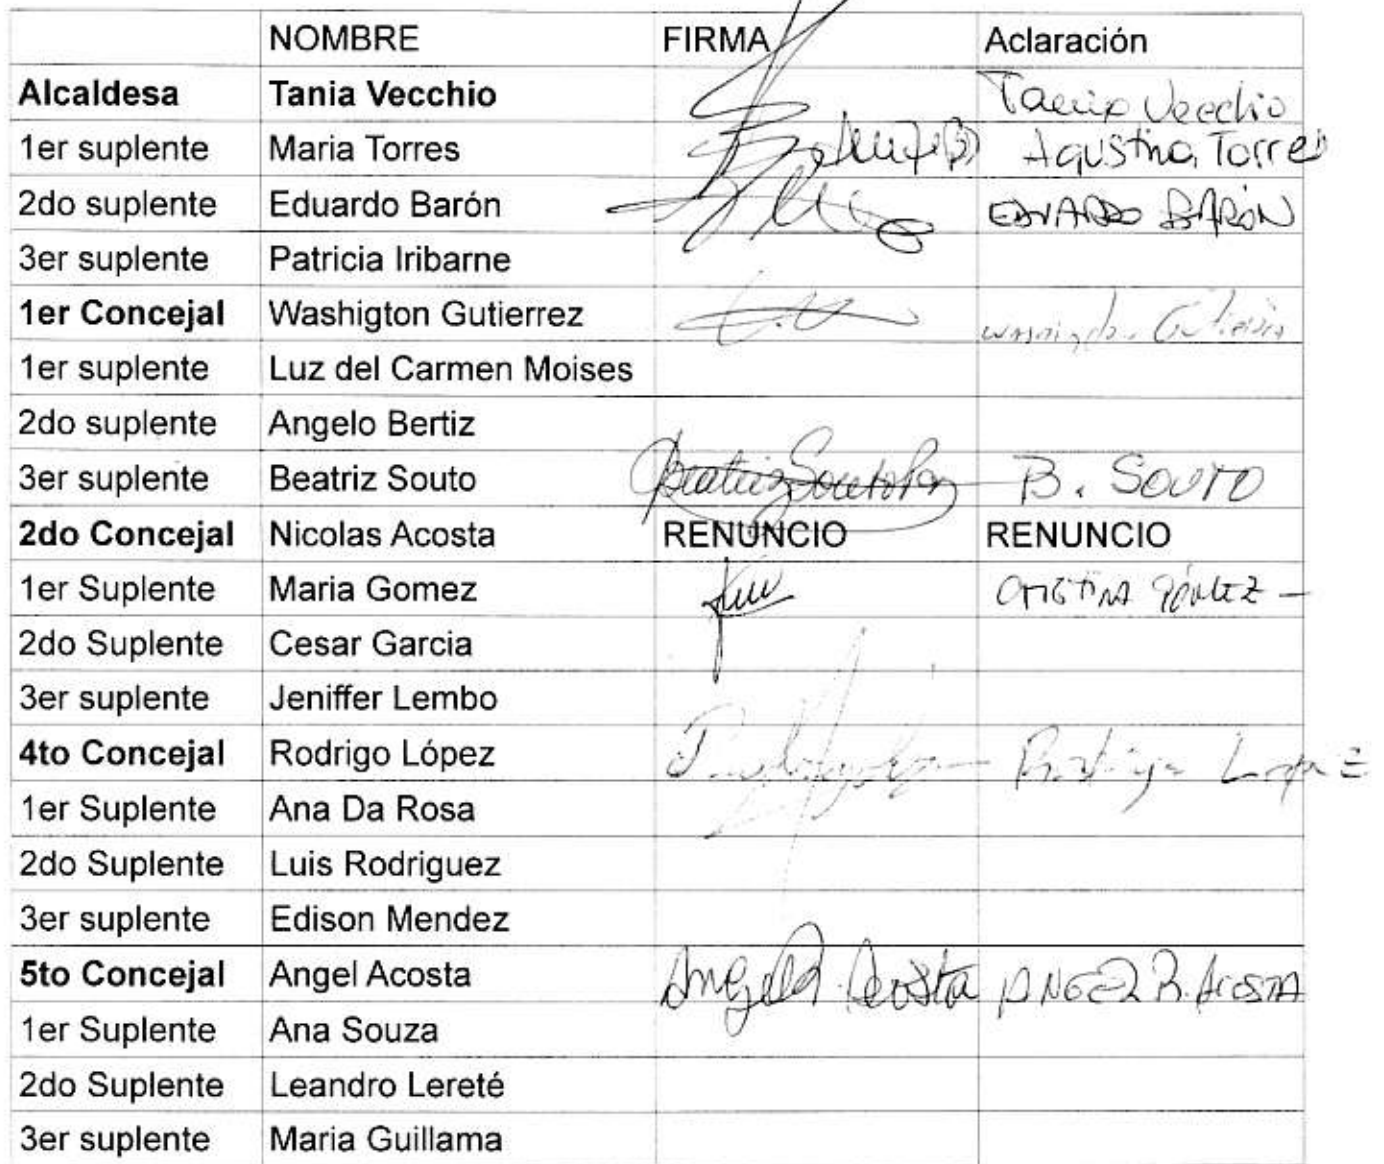 NOMBRE FIRMA Aclaración
Alcaldesa Tania Vecchio Tania Vecchio
1er suplente Maria Torres Agustina Torres
2do suplente Eduardo Barón EDUARDO BARÓN
3er suplente Patricia Iribarne
1er Concejal Washigton Gutierrez
1er suplente Luz del Carmen Moises
2do suplente Angelo Bertiz
3er suplente Beatriz Souto Beatriz Souto B. SOUTO
2do Concejal Nicolas Acosta RENUNCIO RENUNCIO
1er Suplente Maria Gomez CRISTINA GÓMEZ -
2do Suplente Cesar Garcia
3er suplente Jeniffer Lembo
4to Concejal Rodrigo López Rodrigo Lopez
1er Suplente Ana Da Rosa
2do Suplente Luis Rodriguez
3er suplente Edison Mendez
5to Concejal Angel Acosta Angel Acosta ANGEL R. ACOSTA
1er Suplente Ana Souza
2do Suplente Leandro Lereté
3er suplente Maria Guillama